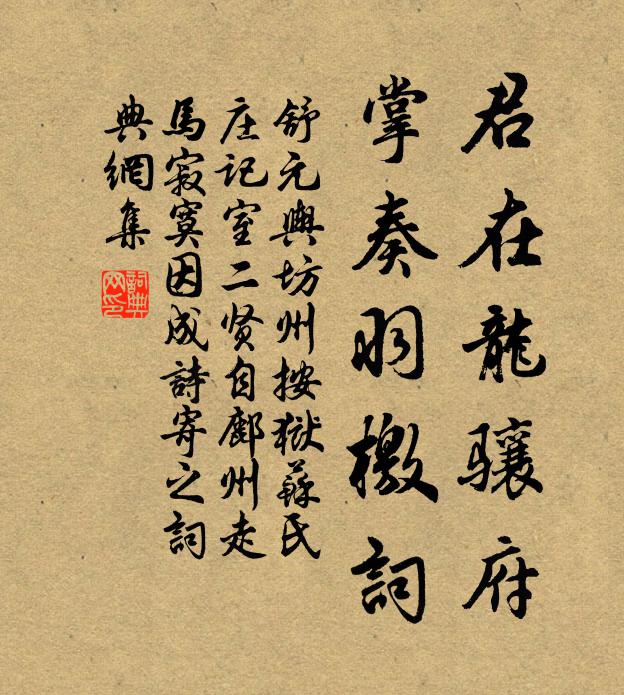 君在龍骧府
掌奏羽檄詞
舒元輿坊州按獄蘇氏
庄记室二贤自鄜州走
馬寂寞因成詩寄之詞
典網集
詞典
网印